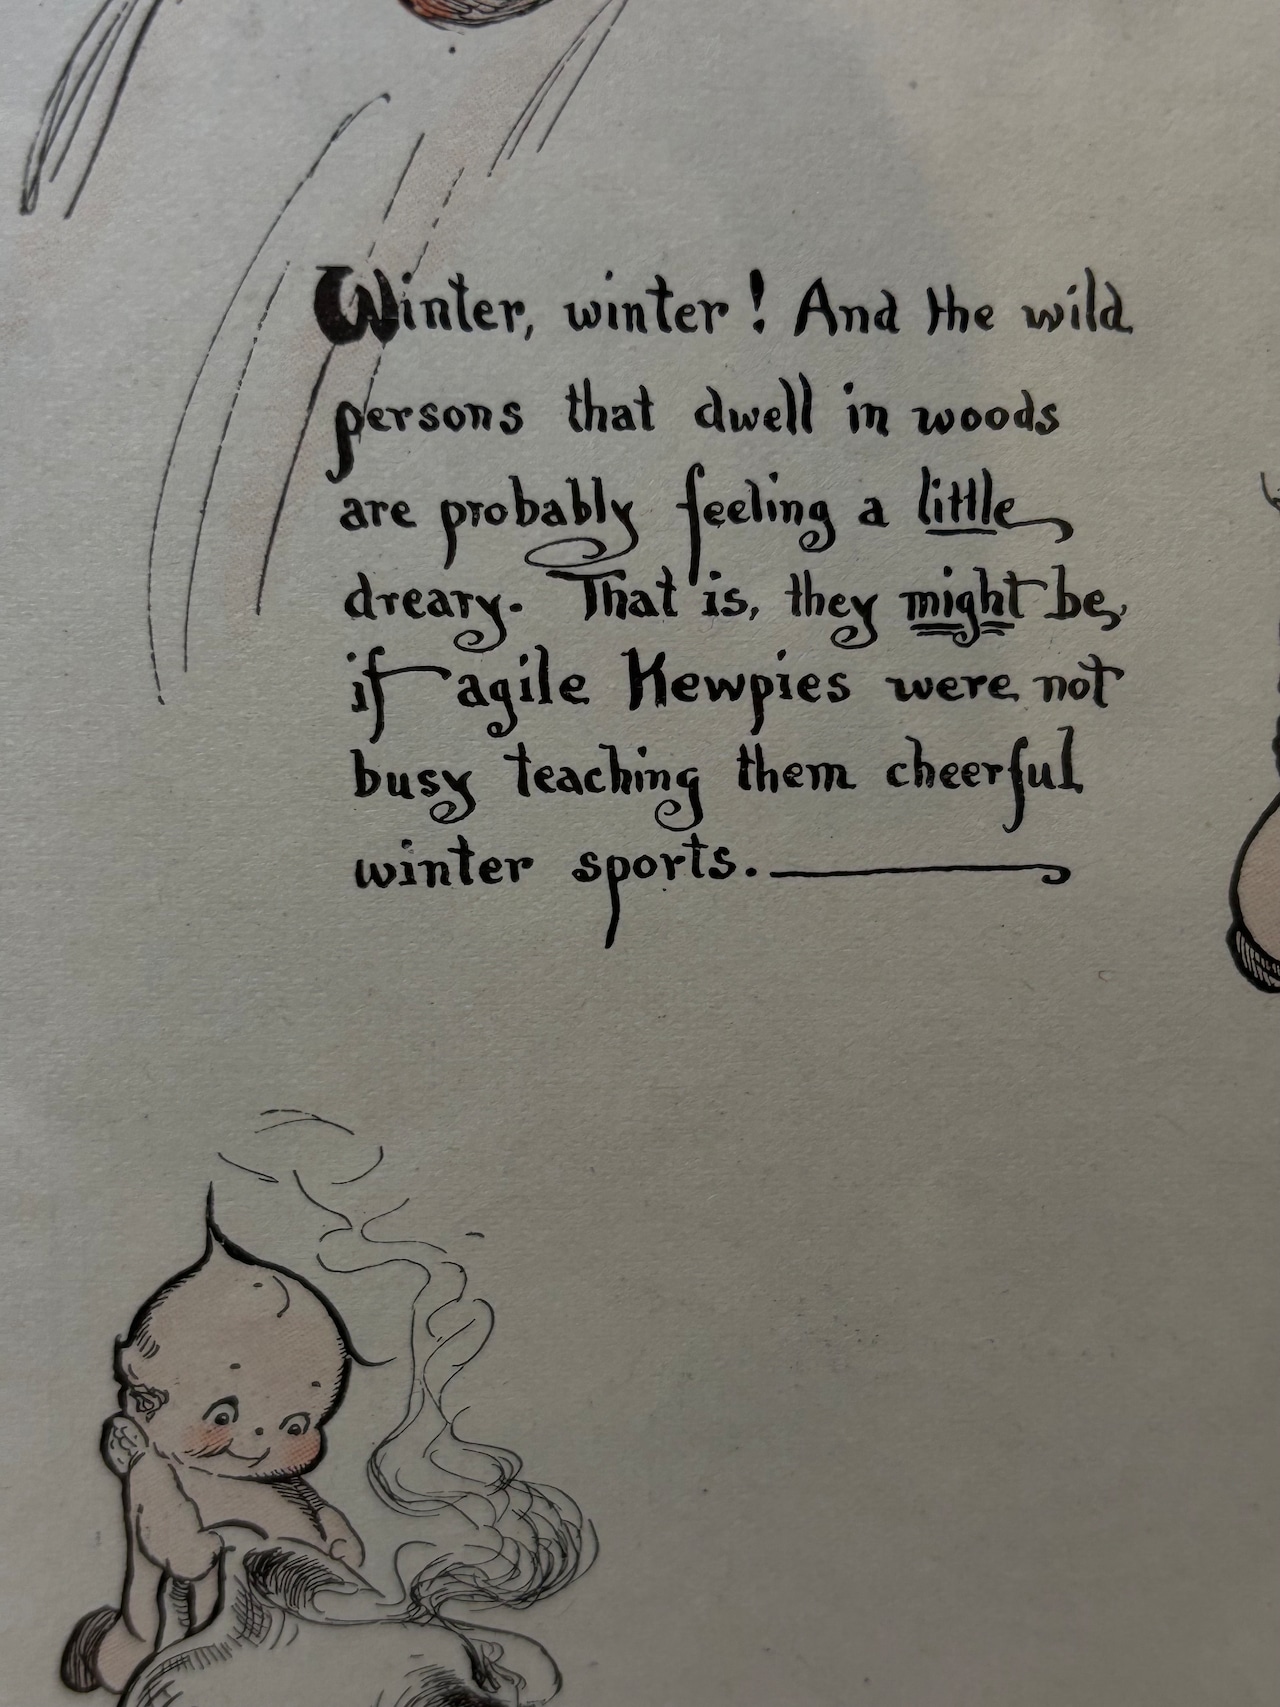 Winter, winter! And the wild
persons that dwell in woods
are probably feeling a little
dreary. That is, they might be,
if agile Kewpies were not
busy teaching them cheerful
winter sports.